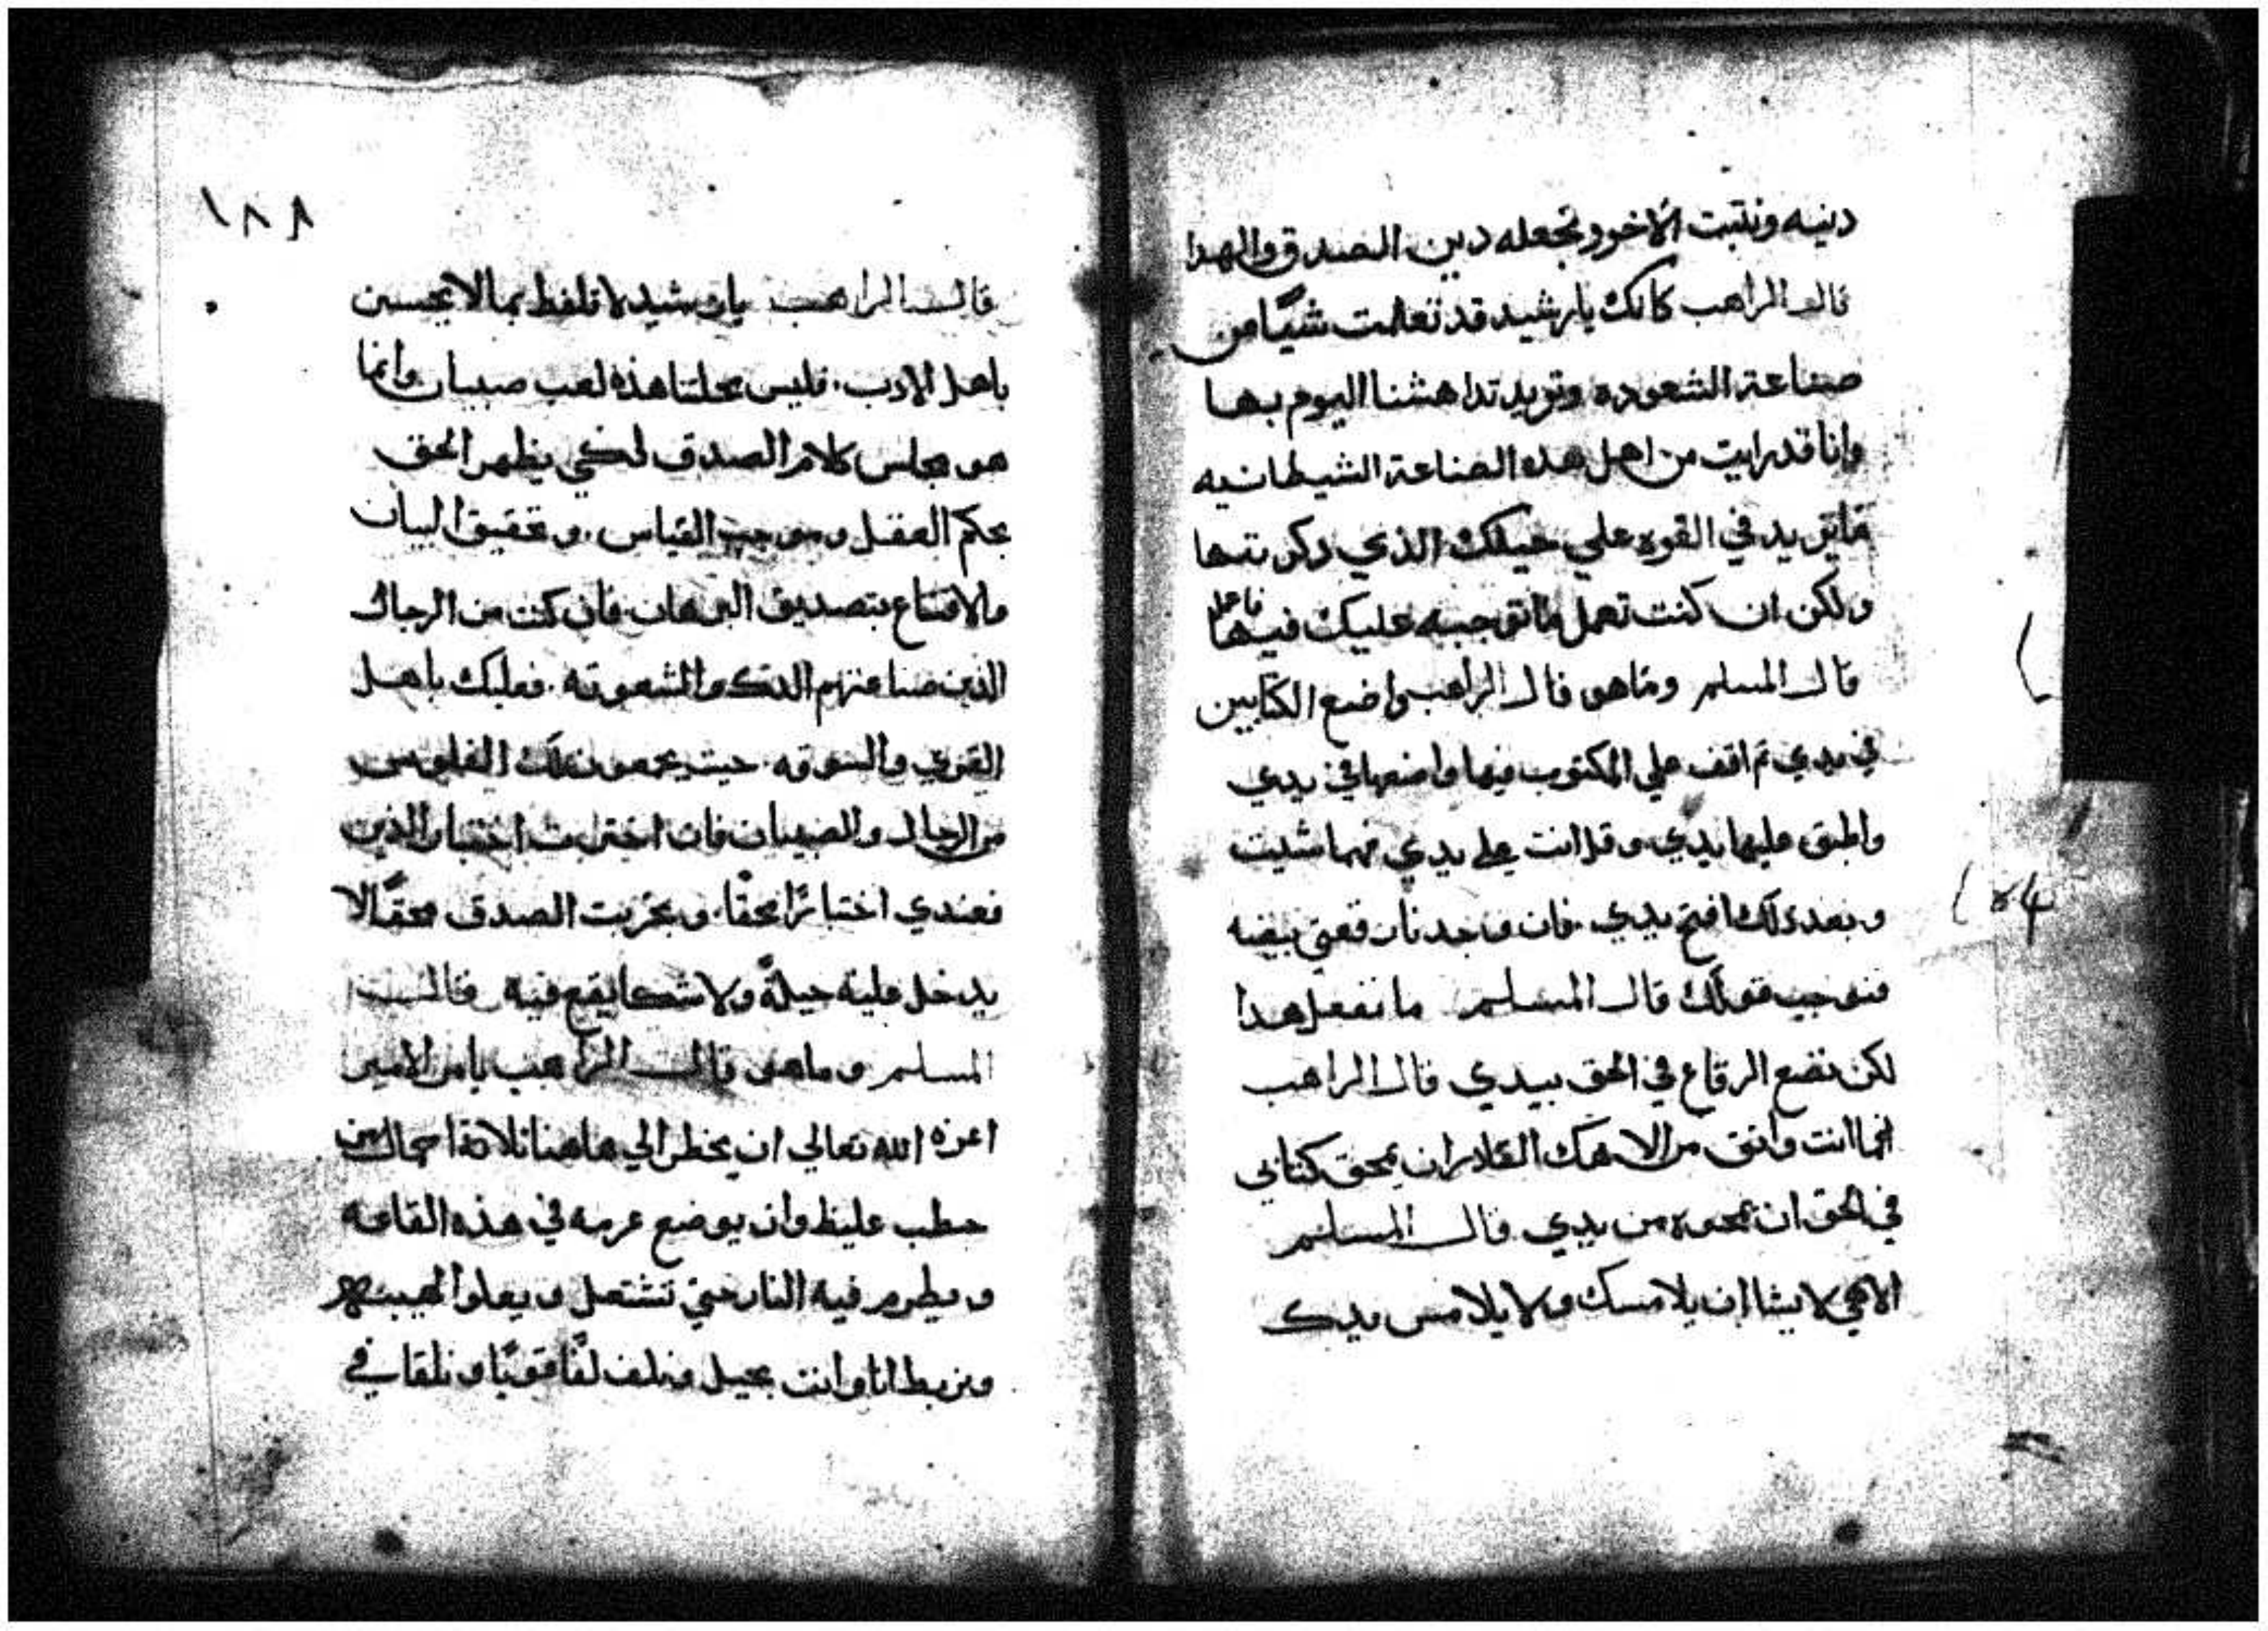 دنيه ونثبت الاخر ونجعله دين الصدق والهدا
قال الراهب كانك يارشيد قد تعلمت شيًا من
صناعة الشعوده وتريد تداهشنا اليوم بها
وانا قد رايت من اهل هده الصناعة الشيطانيه
مايزيد في القوه علي حيلك الذي دكرتها
ولكن ان كنت تعمل مانوجبه عليك فيها
قال المسلم وماهو قال الراهب واضع الكتابين
في يدي ثم اقف علي المكتوب فيها واضعها في يدي
واطبق عليها يدي وقل انت علي يدي مهما شيت
وبعد دلك افتح يدي فان وجدنا رقعتي بيضه
فنوجب قولك قال المسلم ما نفعل هدا
لكن نضع الرقاع في الحق بيدي قال الراهب
انما انت واثق من الاهك القادر ان يمحق كتابي
في الحق ان يمحوه من يدي قال المسلم
الاهي لا يشا ان يلامسك ولا يلامس يدك
١٨٨
قال الراهب يارشيد لا تلفظ بما لا يحسن
باهل الادب. فليس محلتنا هذه لعب صبيان وانما
هو مجلس كلام الصدق لكي يظهر الحق
بحكم العقل وموجب القياس. وتحقيق البيان
والاقناع بتصديق البرهان. فان كنت من الرجال
الذين صناعتهم الدك والشعوته. فعليك باهل
القري والسوقه. حيت يجمعون تلك الفلوس
من الرجال والصبيان فان اخترت اختبار الدين
فعندي اختبارًا محقًا. وبجربت الصدق محقًا لا
يدخل عليه حيلةً ولا شكا يقع فيه قال
المسلم وماهو قال الراهب يامر الامير
اعزه الله تعالي ان يحظر الي هاهنا ثلاثة احمال من
حطب غليظ وان يوضع عرمه في هذه القاعه
ويطرم فيه النار حتي تشتعل ويعلوا لهيبها
ونربط انا وانت بحبل ونلف لفًا قويًا ونلقا في